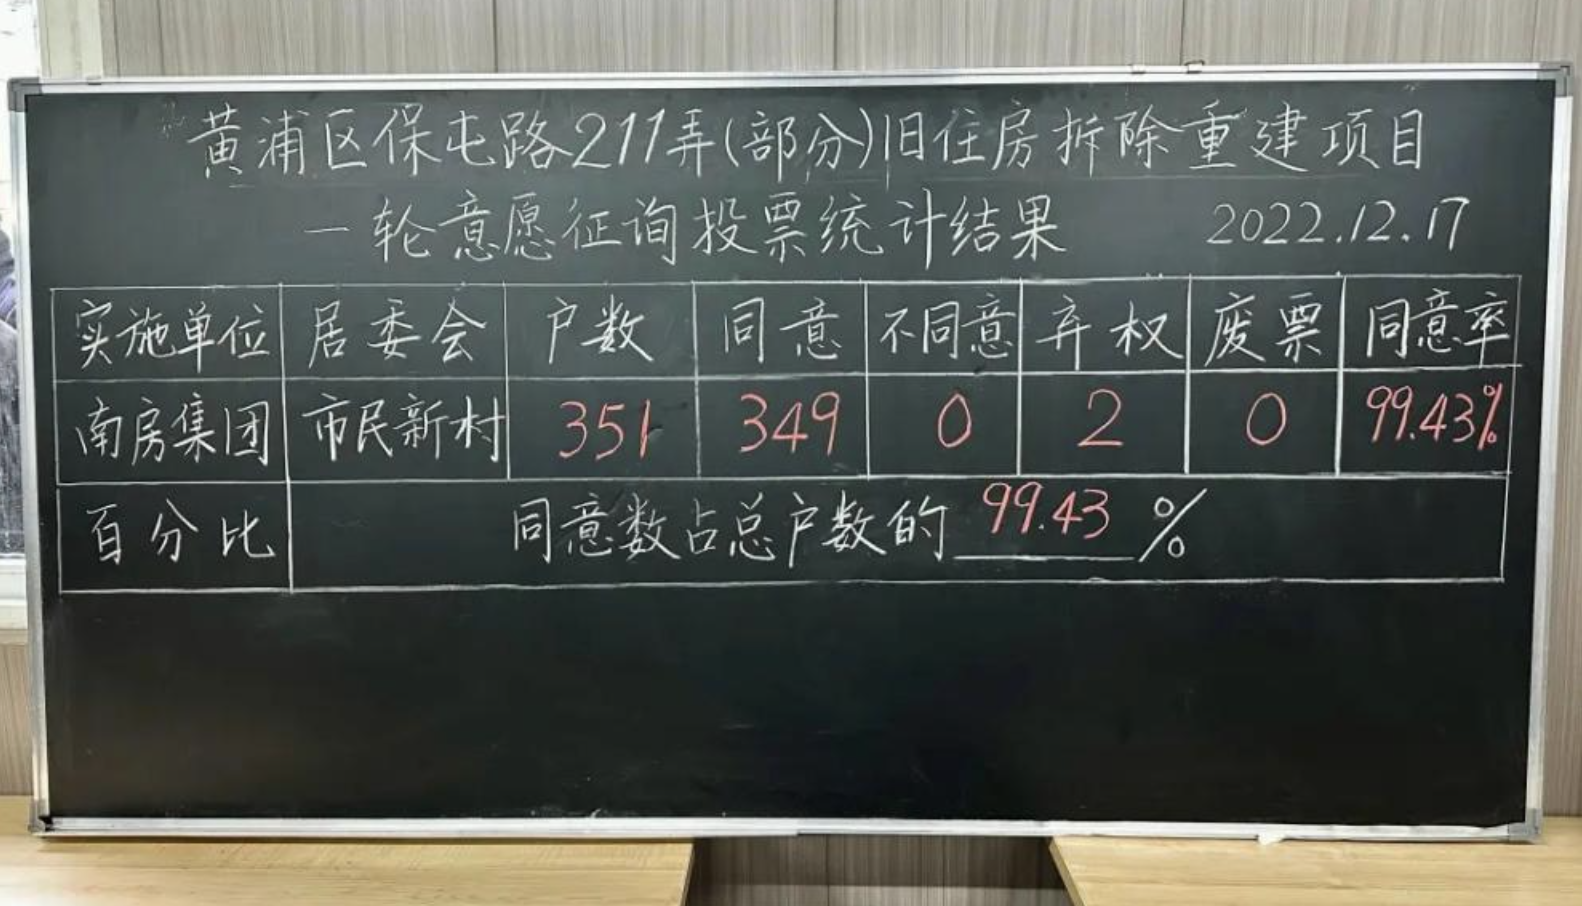 黄浦区保屯路211弄(部分)旧住房拆除重建项目
一轮意愿征询投票统计结果 2022.12.17
实施单位 居委会 户数 同意 不同意 弃权 废票 同意率
南房集团 市民新村 351 349 0 2 0 99.43%
百分比 同意数占总户数的 99.43 %